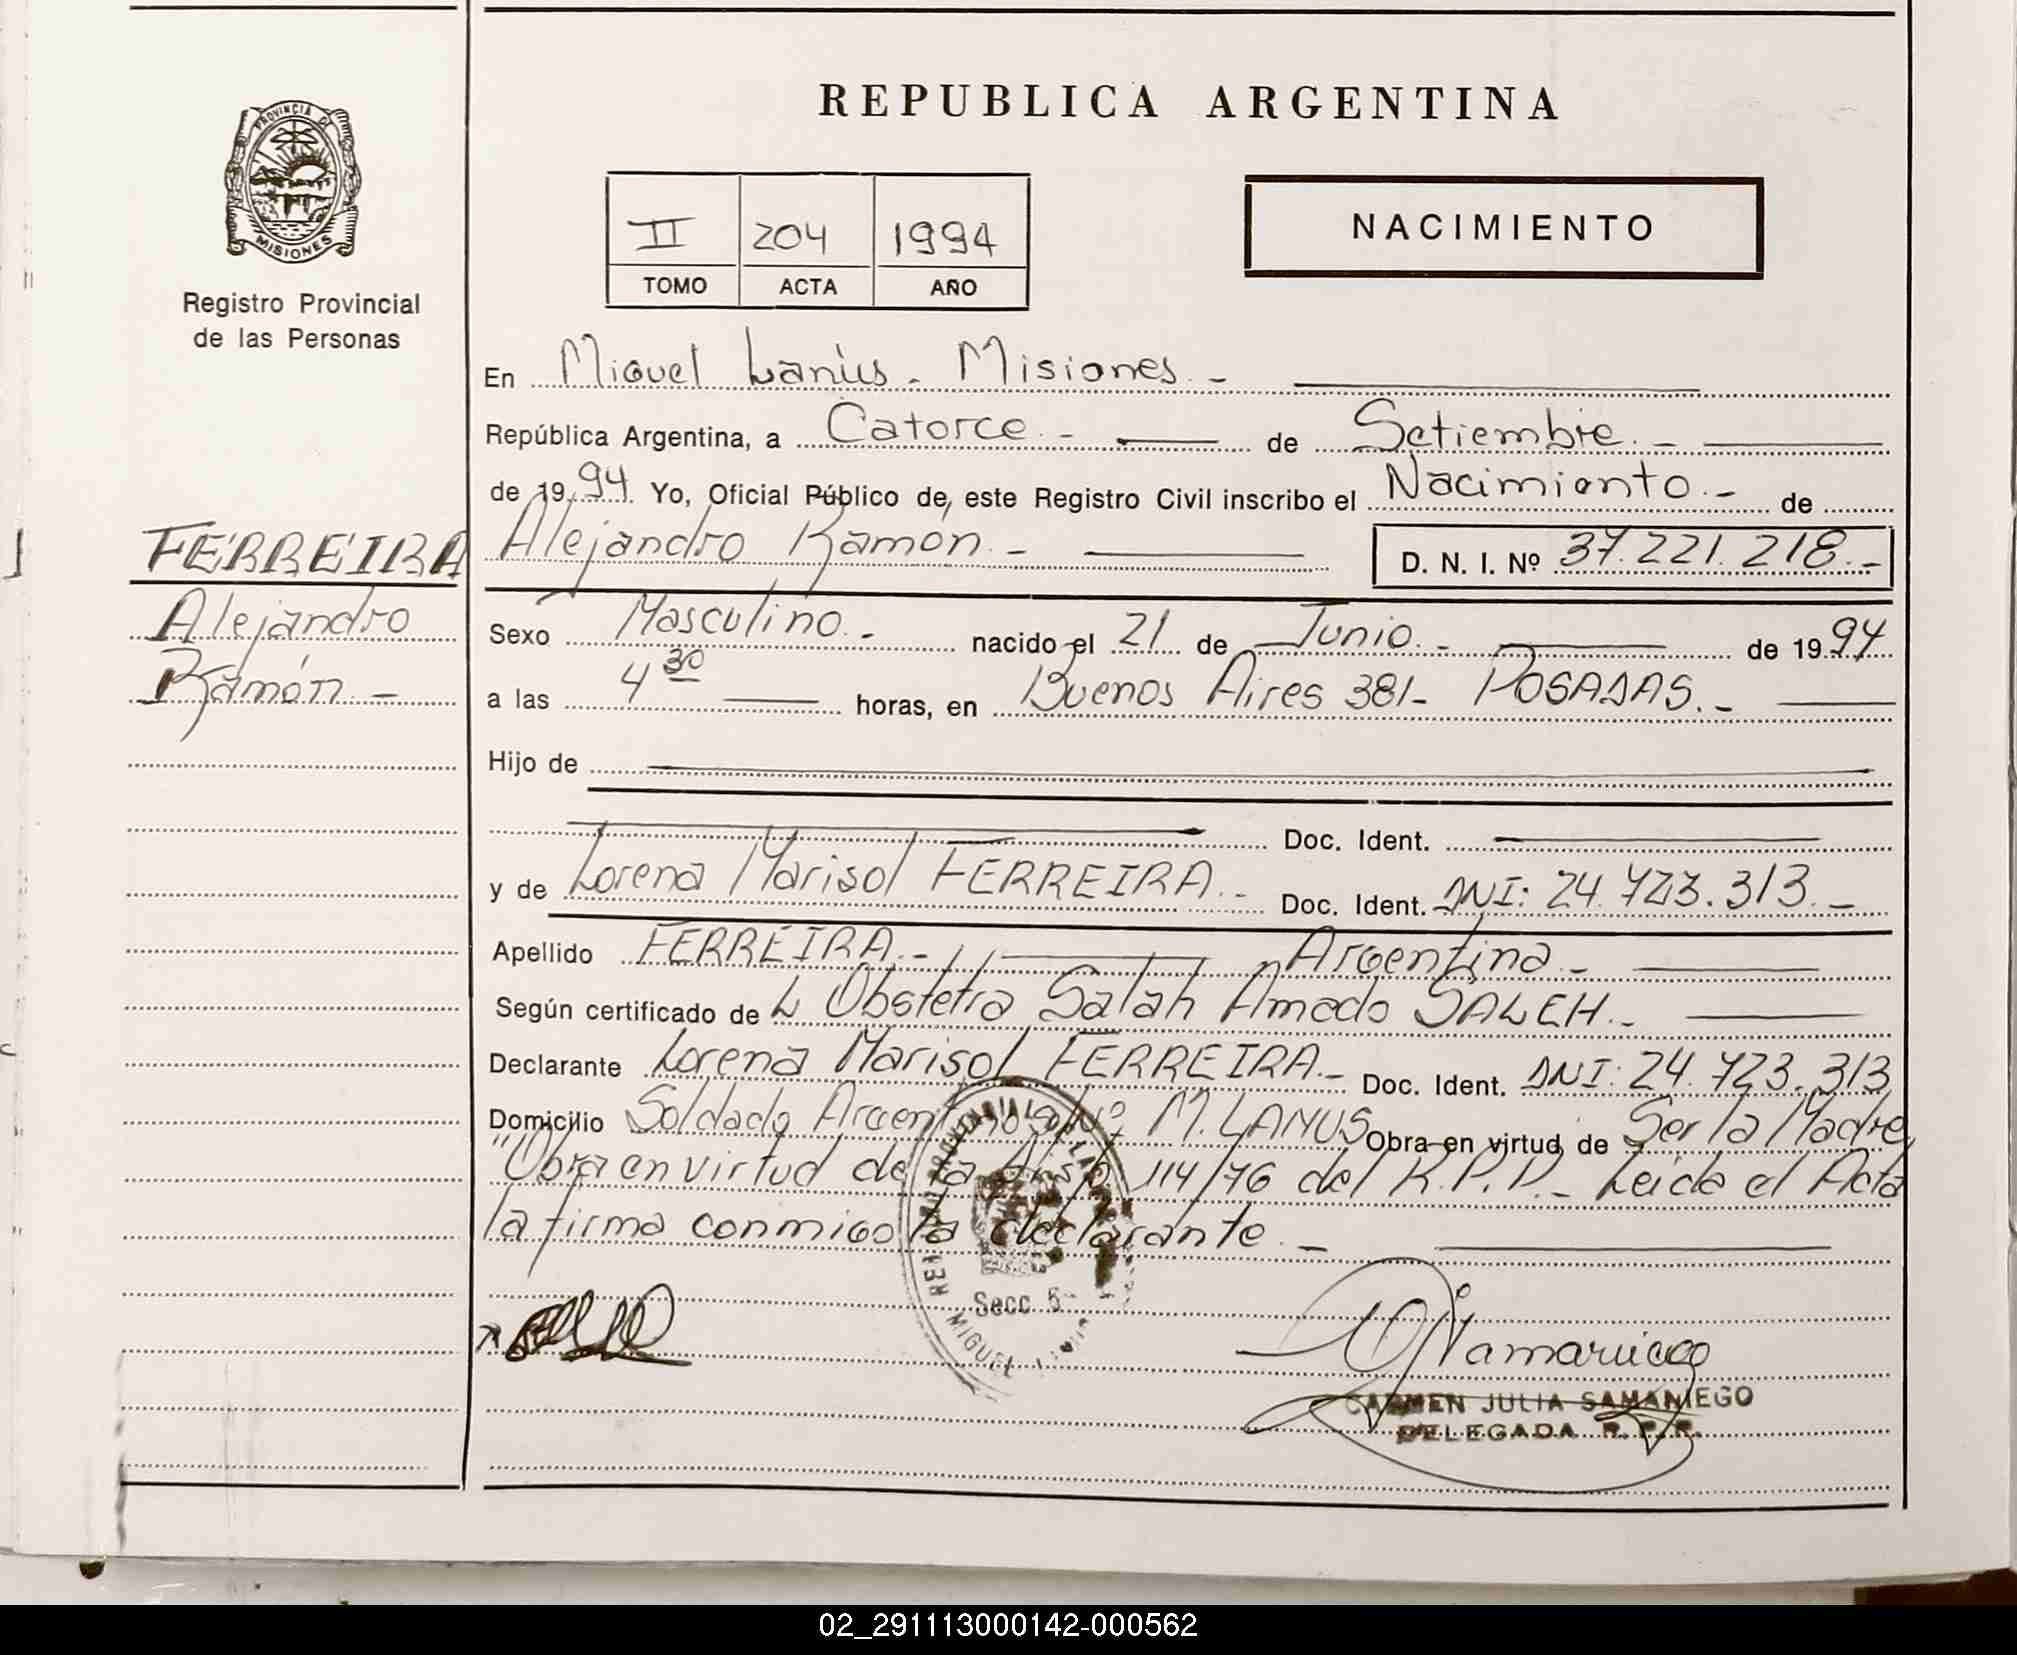 REPUBLICA ARGENTINA
PROVINCIA DE
MISIONES
Registro Provincial
de las Personas
II 204 1994
TOMO ACTA AÑO
NACIMIENTO
En Miguel Lanús - Misiones -
República Argentina, a Catorce - de Setiembre. -
de 1994 Yo, Oficial Público de este Registro Civil inscribo el Nacimiento. - de
FERREIRA
Alejandro
Ramón. -
Alejandro Ramón. - D. N. I. Nº 37.221.218. -
Sexo Masculino. - nacido el 21 de Junio. - de 1994
a las 4 30 horas, en Buenos Aires 381- POSADAS. -
Hijo de
Doc. Ident.
y de Lorena Marisol FERREIRA. - Doc. Ident. DNI: 24.723.313. -
Apellido FERREIRA. - Argentina. -
Según certificado de L Obstetra Salah Amado SALEH. -
Declarante Lorena Marisol FERREIRA. - Doc. Ident. DNI: 24.723.313
Domicilio Soldado Argentino s/Nº M. LANUS Obra en virtud de Ser la Madre
"Obra en virtud de la Disp. 114/76 del R.P.P. - Leida el Acta
la firma conmigo la declarante. -
Secc 5
MIGUEL
CARMEN JULIA SAMANIEGO
DELEGADA R.P.P.
02_291113000142-000562